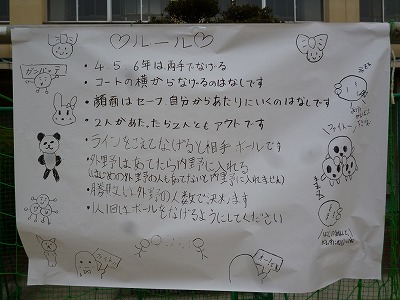 ♡ルール♡
・4 5 6年は、両手でなげる
・コートの横からなげるのはなしです
・顔面はセーフ、自分からあたりにいくのはなしです
・2人があたったら2人ともアウトです
・ラインをこえてなげると相手ボールです
・外野はあてたら内野に入れる
(はじめの外野の人もあてないと内野に入れません)
・勝敗は外野の人数で決めます
・1人1回はボールをなげるようにしてください
ファイトー